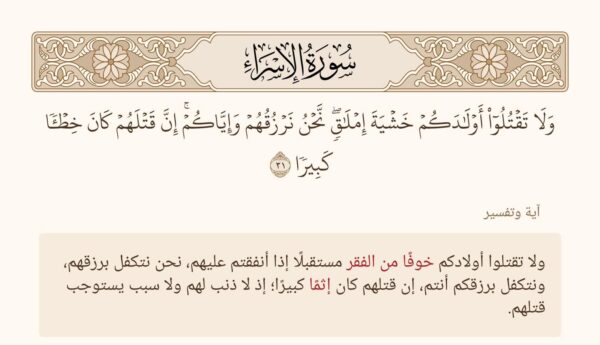 سُورَةُ الإِسْرَاءِ
وَلَا تَقْتُلُوٓا۟ أَوْلَـٰدَكُمْ خَشْيَةَ إِمْلَـٰقٍۢ ۖ نَّحْنُ نَرْزُقُهُمْ وَإِيَّاكُمْ ۚ إِنَّ قَتْلَهُمْ كَانَ خِطْـًۭٔا
كَبِيرًۭا ٣١
آية وتفسير
ولا تقتلوا أولادكم خوفًا من الفقر مستقبلًا إذا أنفقتم عليهم، نحن نتكفل برزقهم،
ونتكفل برزقكم أنتم، إن قتلهم كان إثمًا كبيرًا؛ إذ لا ذنب لهم ولا سبب يستوجب
قتلهم.